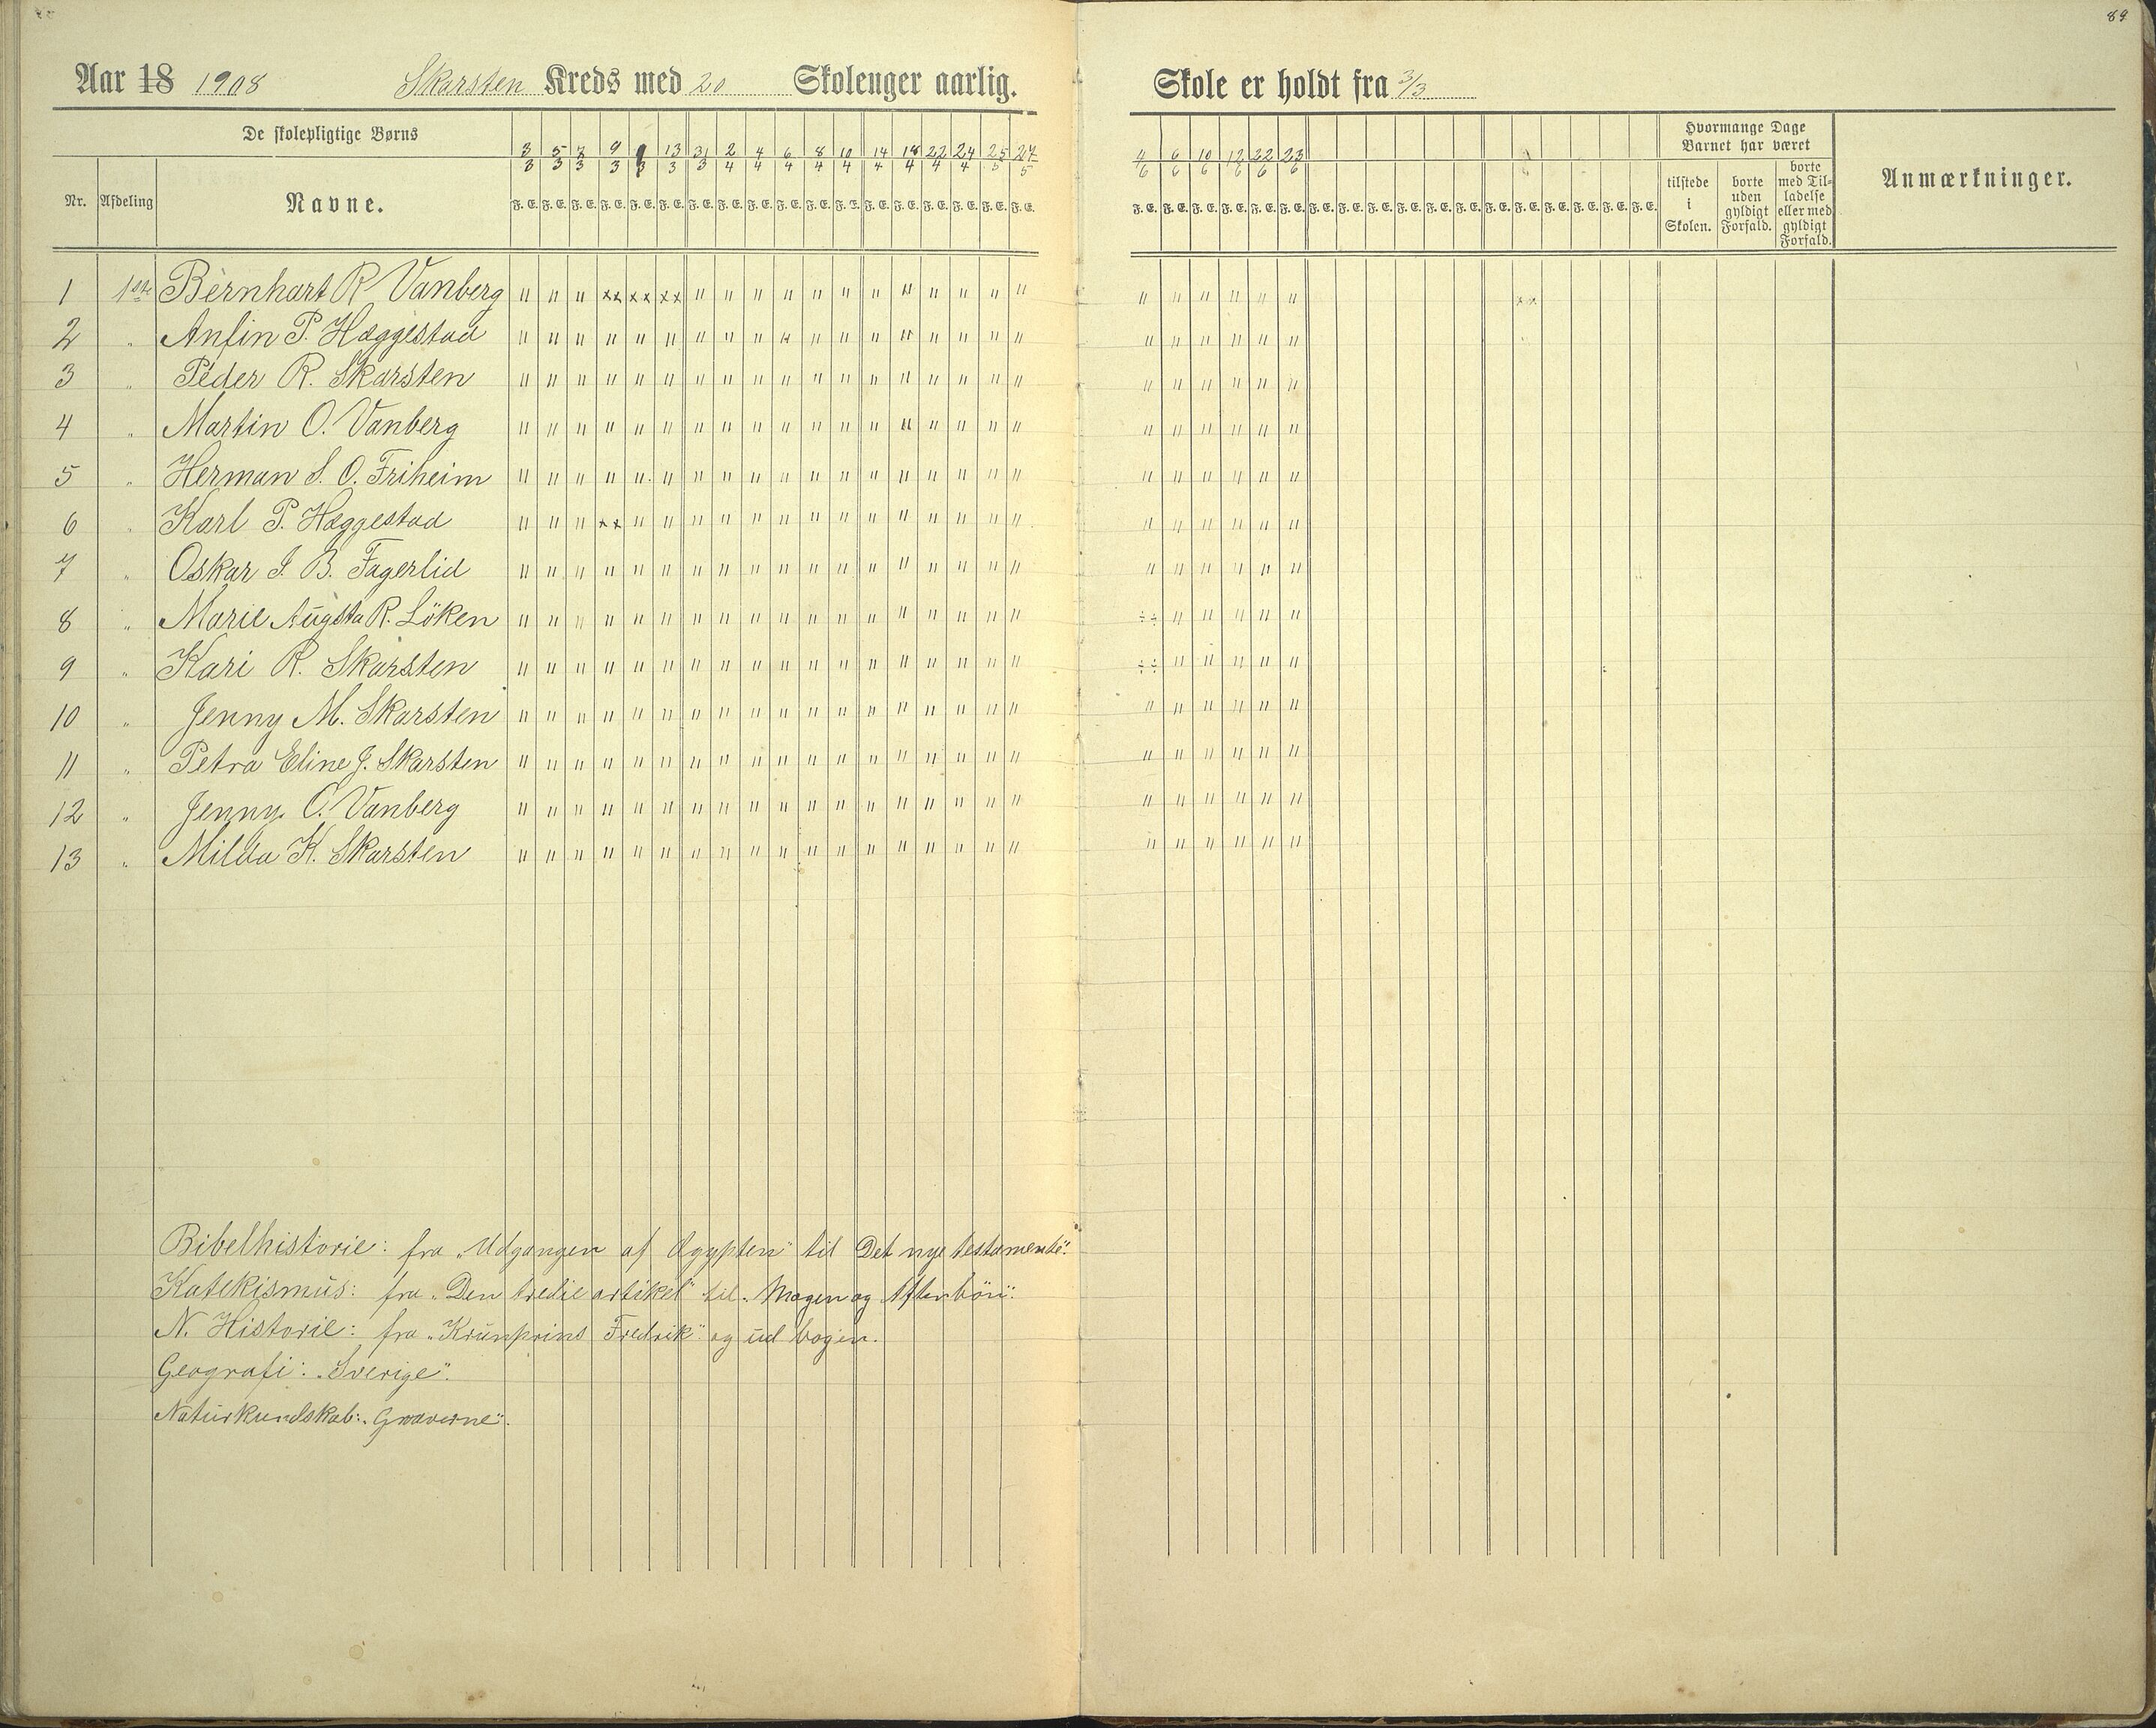 89
Aar 18 1908 Skarsten Kreds med 20 Skoleuger aarlig.
Skole er holdt fra 3/3
De skolepligtige Børns
Nr. Afdeling Navne.
3/3 5/3 7/3 9/3 13/3 31/3 2/4 4/4 6/4 8/4 10/4 14/4 18/4 22/4 24/4 25/5 27/5
F. E. F. E. F. E. F. E. F. E. F. E. F. E. F. E. F. E. F. E. F. E. F. E. F. E. F. E. F. E. F. E. F. E. F. E.
4/6 6/6 10/6 12/6 22/6 23/6
F. E. F. E. F. E. F. E. F. E. F. E. F. E. F. E. F. E. F. E. F. E. F. E. F. E. F. E. F. E. F. E. F. E. F. E.
Hvormange Dage
Barnet har været
tilstede
i
Skolen.
borte
uden
gyldigt
Forfald.
borte
med Til-
ladelse
eller med
gyldigt
Forfald.
Anmærkninger.
1 1ste Bernhart R Vanberg " " " xx xx xx " " " " " " " " " " " " " " " " " " xx
2 " Anfin P. Hæggestad " " " " " " " " " " " " " " " " " " " " " " " "
3 " Peder R. Skarsten " " " " " " " " " " " " " " " " " " " " " " " "
4 " Martin O. Vanberg " " " " " " " " " " " " " " " " " " " " " " " "
5 " Herman S. O. Friheim " " " " " " " " " " " " " " " " " " " " " " " "
6 " Karl P. Hæggestad " " " xx " " " " " " " " " " " " " " " " " " " "
7 " Oskar J. B. Fagerlid " " " " " " " " " " " " " " " " " " " " " " " "
8 " Marie Augsta R. Löken " " " " " " " " " " " " " " " " " " ÷÷ " " " " "
9 " Kari R. Skarsten " " " " " " " " " " " " " " " " " " ÷÷ " " " " "
10 " Jenny M. Skarsten " " " " " " " " " " " " " " " " " " " " " " " "
11 " Petra Eline J. Skarsten " " " " " " " " " " " " " " " " " " " " " " " "
12 " Jenny O. Vanberg " " " " " " " " " " " " " " " " " " " " " " " "
13 " Milda K. Skarsten " " " " " " " " " " " " " " " " " " " " " " " "
Bibelhistorie: fra „Udgangen af Ægypten" til Det nye testamente".
Katekismus: fra „Den tredie artikel" til „Morgen og Aftenbön".
N. Historie: fra „Krunprins Fredrik" og ud bogen.
Geografi: „Sverige".
Naturkundskab: „Gnaverne".